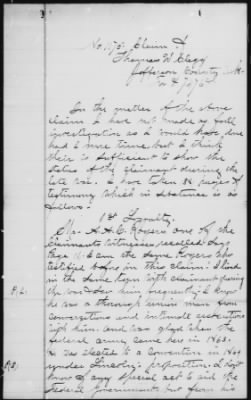 No. 1175. Claim of
Thomas W. Clegg
Jefferson County Ark
In the matter of the above
claim I have not made as full
investigation as I would have done
had I more time, but I think
their is sufficient to show the
status of the claimant during the
late war. I have taken pages of
testimony which in substance is as
follows.
1st Loyalty.
Mr. A. A. C. Rogers one of the
claimants witnesses recalled says
Page I am the same Rogers who
testified before in this claim. I lived
in the same town with claimant during
the war & saw him frequently & knew
he was a thorough union man from
conversations and intimate associations
with him and was glad when the
federal army came here in 1863.
& was elected to a Convention in 1864
under Lincoln's proposition. I don't
know of any special act to aid the
Federal Government but from his